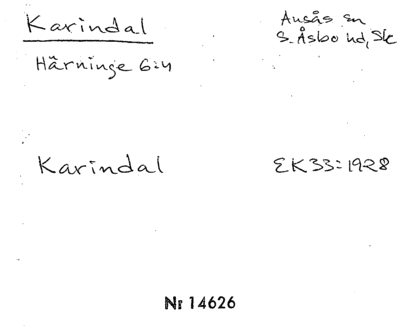 Karindal
Ausås sn
S. Åsbo hd, Sk
Härninge 6:4
Karindal
EK33:1928
Nr 14626